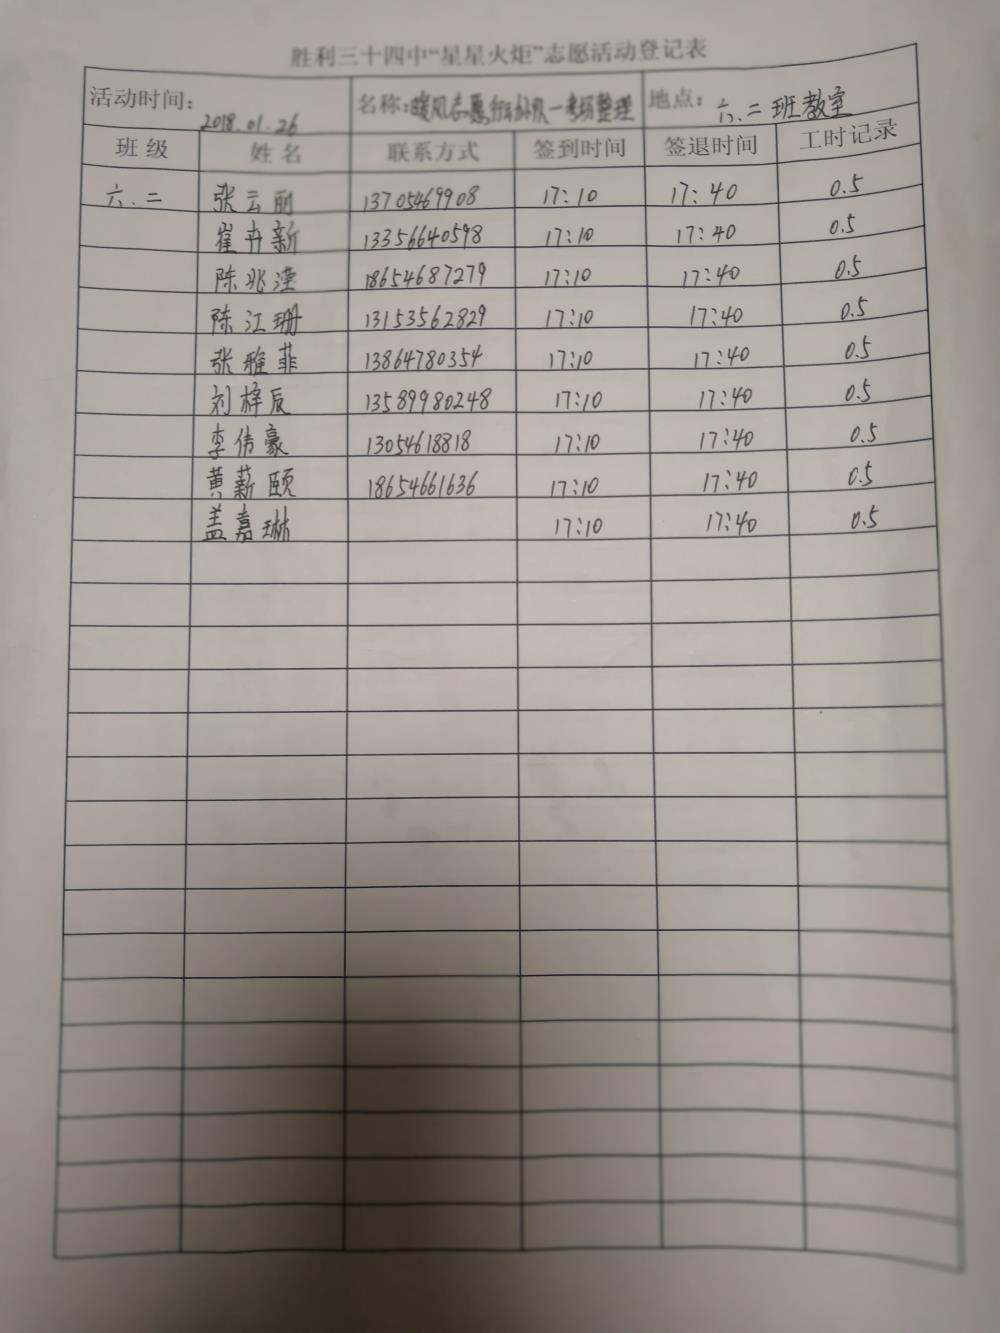 胜利三十四中“星星火炬”志愿活动登记表
活动时间：2018.01.26 名称：暖风志愿行动小队一考场整理 地点：六.二班教室
班级 姓名 联系方式 签到时间 签退时间 工时记录
六.二 张云丽 13705469908 17:10 17:40 0.5
崔卉新 13356640598 17:10 17:40 0.5
陈兆滢 18654687279 17:10 17:40 0.5
陈江珊 13153562829 17:10 17:40 0.5
张雅菲 13864780354 17:10 17:40 0.5
刘梓辰 13589980248 17:10 17:40 0.5
李伟豪 13054618818 17:10 17:40 0.5
黄薪颐 18654661636 17:10 17:40 0.5
盖嘉琳 17:10 17:40 0.5